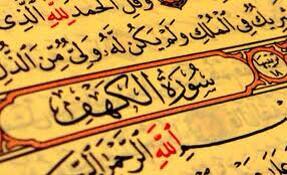 وَقُلِ الْحَمْدُ لِلَّهِ الَّذِي
يكٌ فِي الْمُلْكِ وَلَمْ يَكُن لَّهُ وَلِيٌّ مِّنَ الذُّلِّ
سُورَةُ الْكَهْفِ
١٨
اللَّهِ الرَّحْمَٰنِ
عَلَى